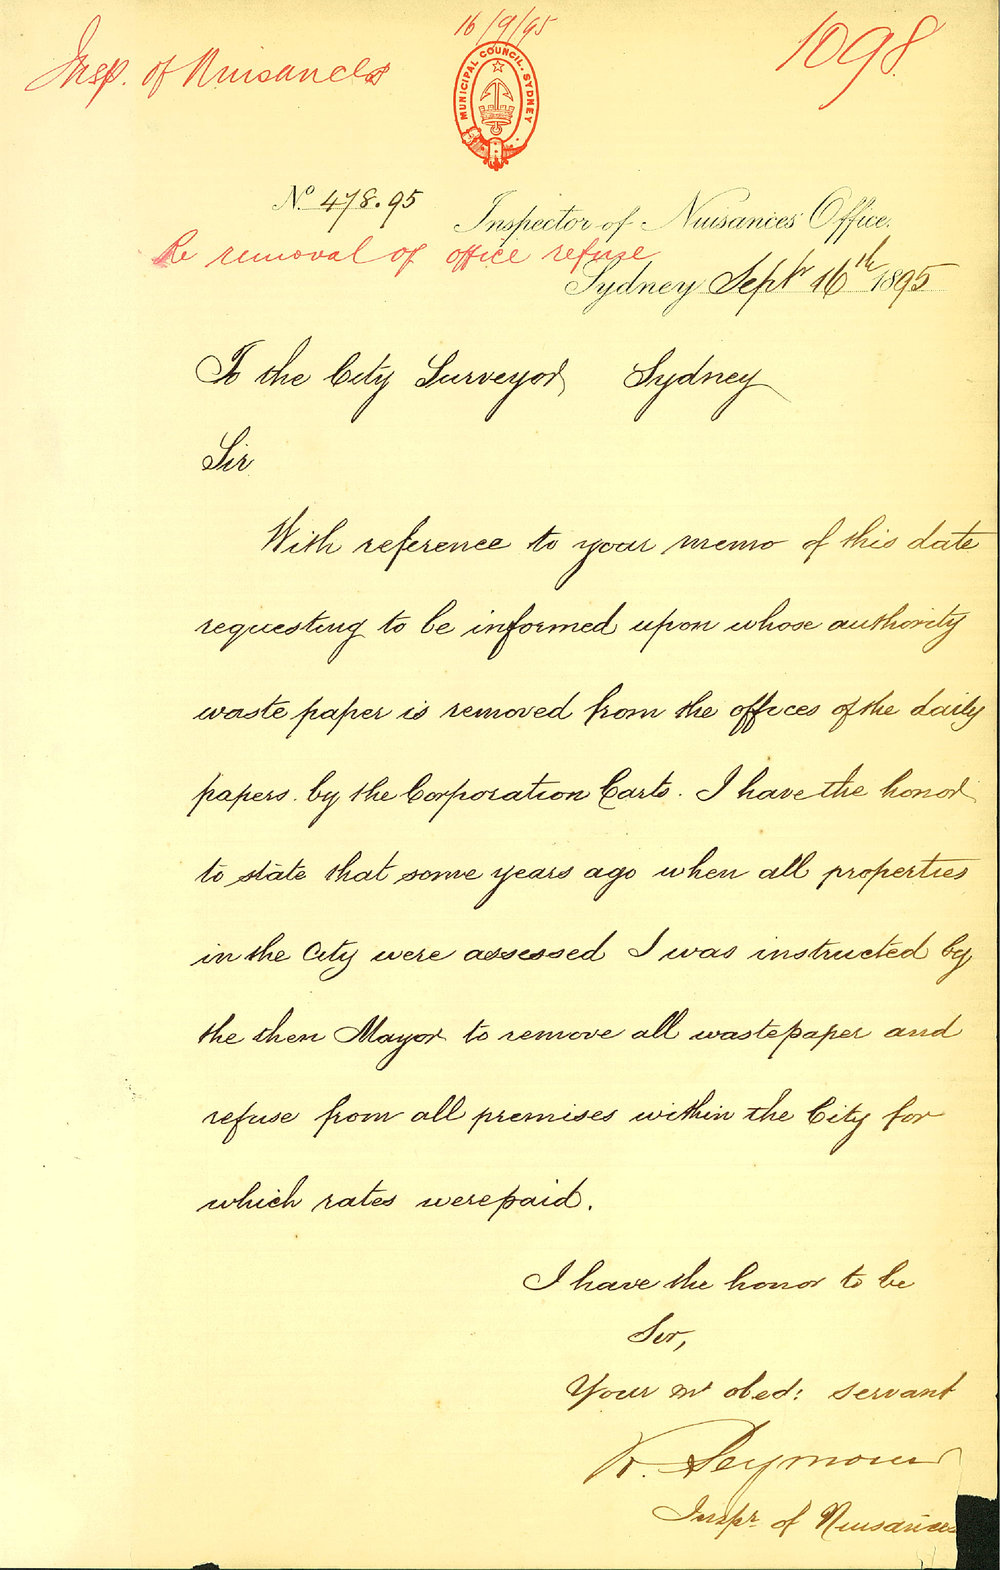 16/9/95
Insp. of Nuisances
1098
MUNICIPAL COUNCIL. SYDNEY
No. 478.95
Inspector of Nuisances' Office.
Re removal of office refuse
Sydney Septr 16th 1895
To the City Surveyor Sydney
Sir
With reference to your memo of this date
requesting to be informed upon whose authority
waste paper is removed from the offices of the daily
papers. by the Corporation Carts. I have the honor
to state that some years ago when all properties
in the City were assessed I was instructed by
the then Mayor to remove all wastepaper and
refuse from all premises within the City for
which rates were paid.
I have the honor to be
Sir,
Your mt obed: servant
R. Seymour
Inspr. of Nuisances